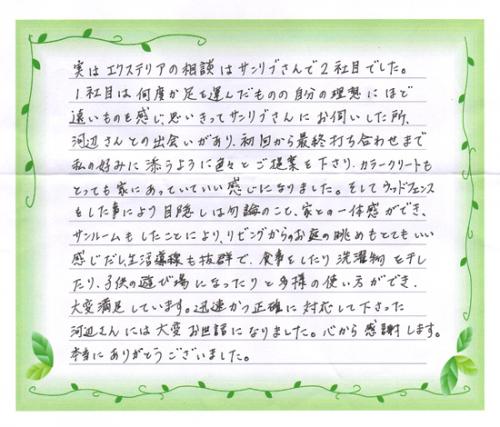 実はエクステリアの相談はサンリブさんで2社目でした。
1社目は何度か足を運んだものの自分の理想にほど
遠いものを感じ、思いきってサンリブさんにお伺いした所、
河辺さんとの出会いがあり、初回から最終打ち合わせまで
私の好みに添うように色々とご提案を下さり、カラークリートも
とっても家にあっていていい感じになりました。そしてウッドフェンス
をした事により目隠しは勿論のこと、家との一体感ができ、
サンルームもしたことにより、リビングからのお庭の眺めもとてもいい
感じだし生活導線も抜群で、食事をしたり洗濯物を干し
たり、子供の遊び場になったりと多様の使い方ができ、
大変満足しています。迅速かつ正確に対応して下さった
河辺さんには大変お世話になりました。心から感謝します。
本当にありがとうございました。